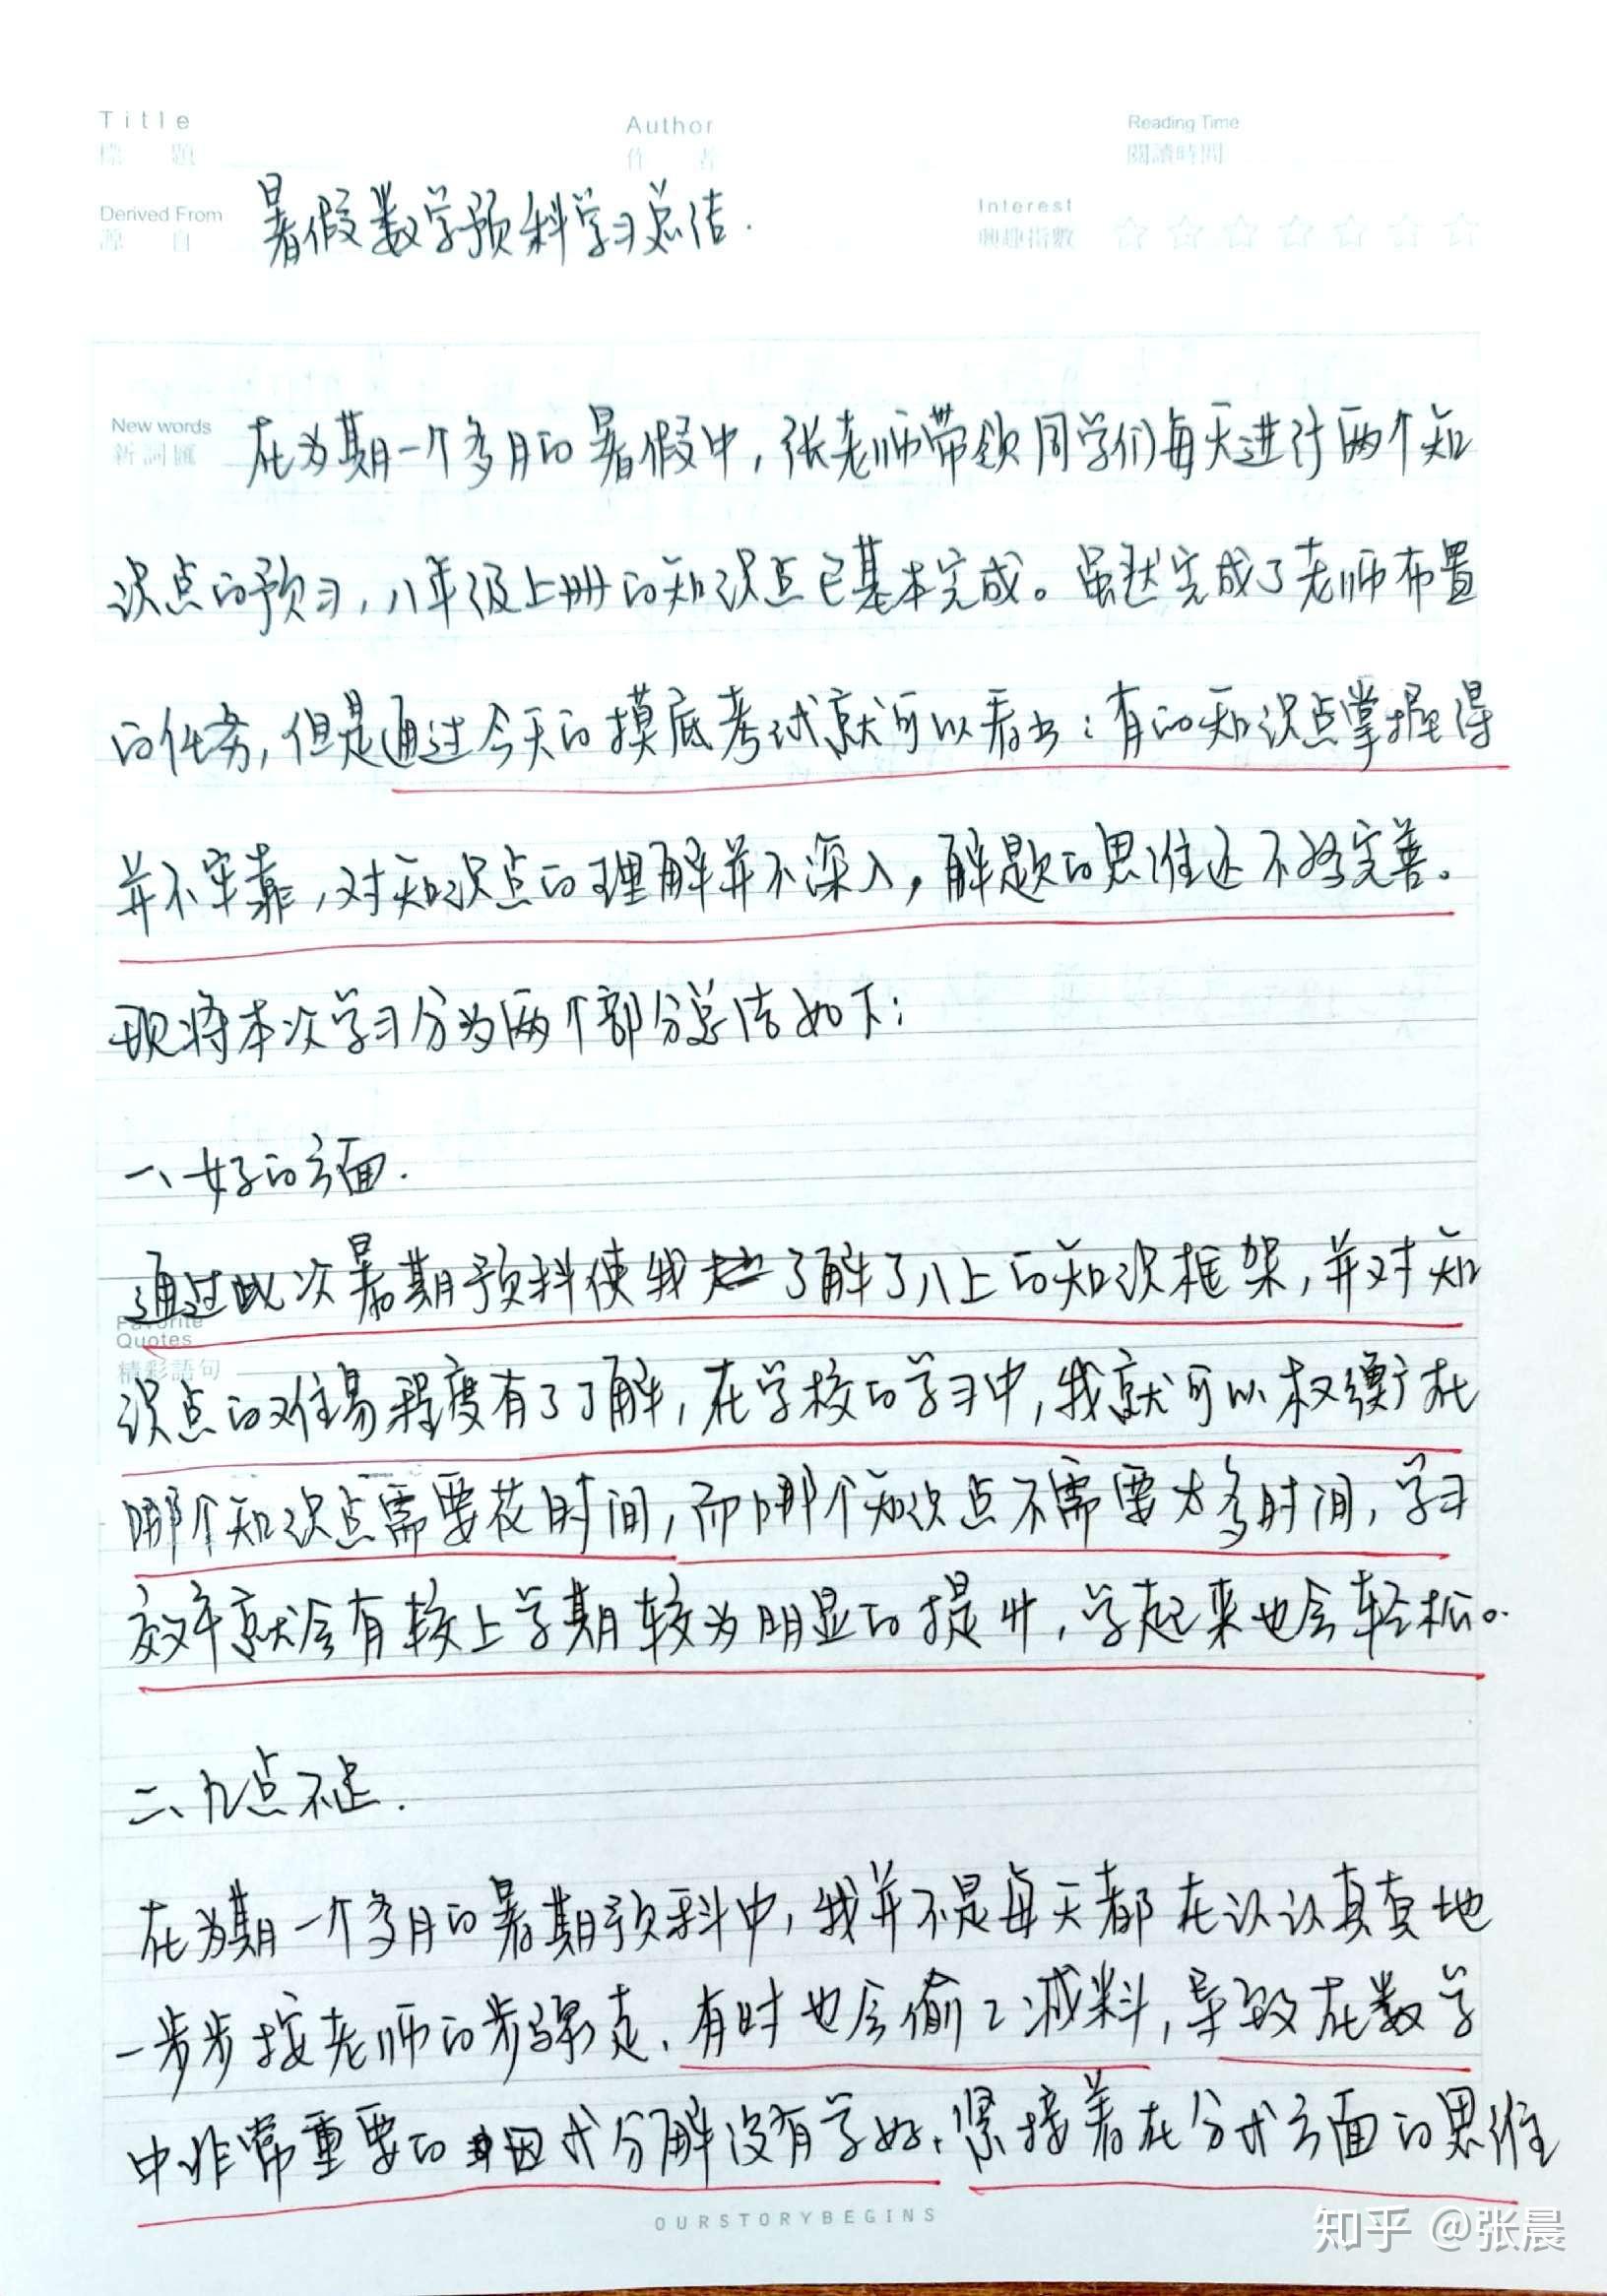 Title
標 題
Author
作 者
Reading Time
閱讀時間
Derived From
源 自
暑假数学预科学习总结.
Interest
興趣指數
New words
新詞匯
在为期一个多月的暑假中，张老师带领同学们每天进行两个知
识点的预习，八年级上册的知识点已基本完成。虽然完成了老师布置
的任务，但是通过今天的摸底考试就可以看出：有的知识点掌握得
并不牢靠，对知识点的理解并不深入，解题的思维还不够完善。
现将本次学习分为两个部分总结如下：
一、好的方面.
通过此次暑期预科使我了解了八上的知识框架，并对知
Favorite
Quotes
精彩語句
识点的难易程度有了了解，在学校的学习中，我就可以权衡在
哪个知识点需要花时间，而哪个知识点不需要太多时间，学习
效率就会有较上学期较为明显的提升，学起来也会轻松。
二、几点不足.
在为期一个多月的暑期预科中，我并不是每天都在认认真真地
一步步按老师的步骤走、有时也会偷工减料，导致在数学
中非常重要的因式分解没有学好、紧接着在分式方面的思维
OURSTORYBEGINS
知乎 @张晨